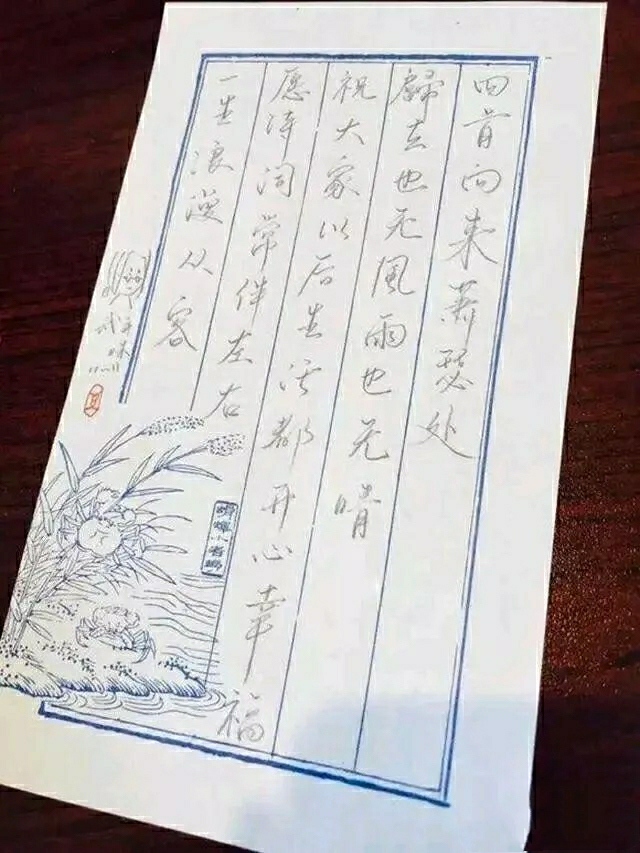 回首向来萧瑟处
歸去也无風雨也无晴
祝大家以后生活都开心幸福
愿诗词常伴左右
一生浪漫从容